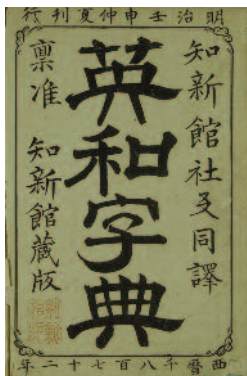 明治壬申仲夏刊行
知新館社友同譯
英和字典
稟准 知新館藏版
西曆千八百七十二年